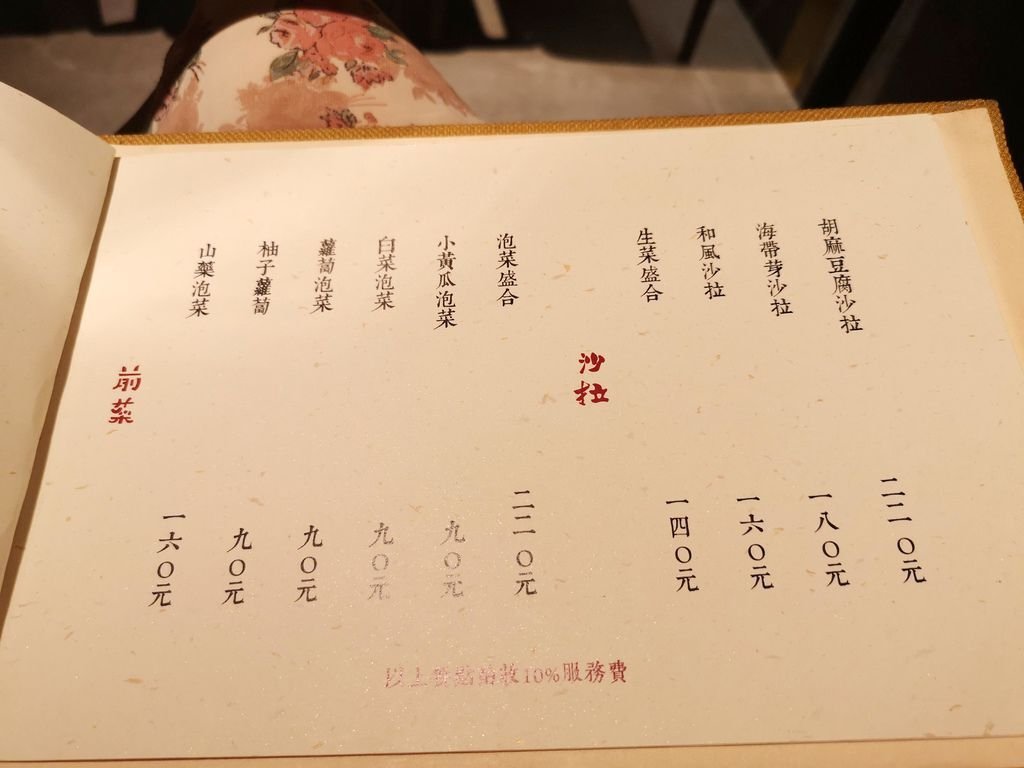 前菜
山藥泡菜 一六〇元
柚子蘿蔔 九〇元
蘿蔔泡菜 九〇元
白菜泡菜 九〇元
小黃瓜泡菜 九〇元
泡菜盛合 二二〇元
沙拉
生菜盛合 一四〇元
和風沙拉 一六〇元
海帶芽沙拉 一八〇元
胡麻豆腐沙拉 二二〇元
以上餐點酌收10%服務費